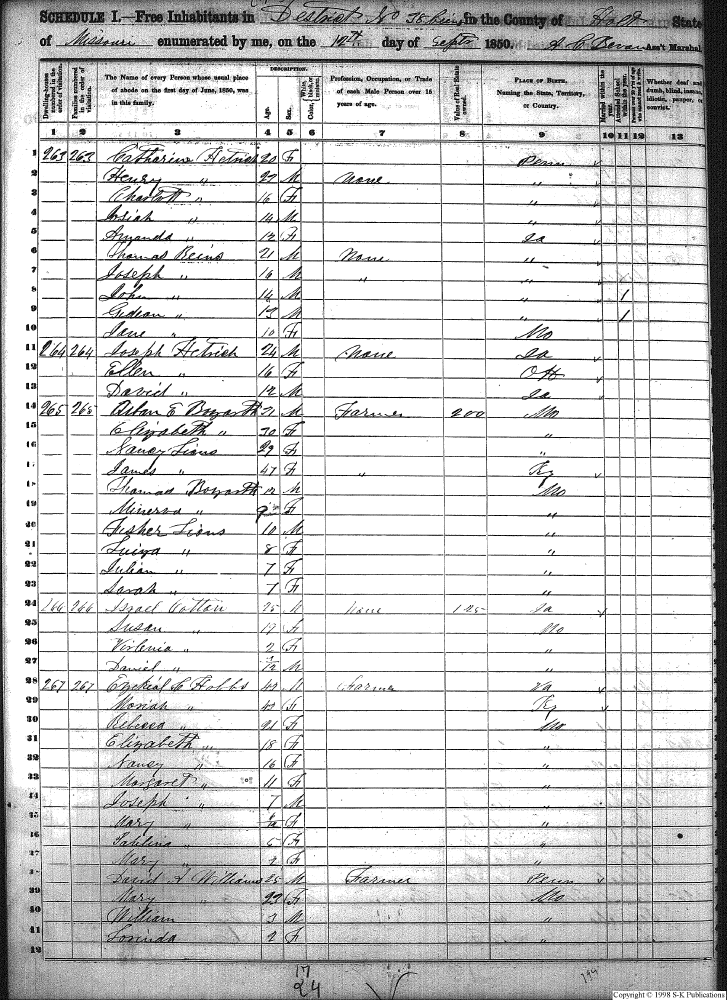 SCHEDULE I.—Free Inhabitants in District No 38 in the County of Holt State
of Missouri enumerated by me, on the 10th day of Septr 1850. A C Bevan Ass't Marshal
Dwelling-houses numbered in the order of visitation.
Families numbered in the order of visitation.
The Name of every Person whose usual place of abode on the first day of June, 1850, was in this family.
DESCRIPTION.
Age.
Sex.
Color, White, black, or mulatto.
Profession, Occupation, or Trade of each Male Person over 15 years of age.
Value of Real Estate owned.
PLACE OF BIRTH. Naming the State, Territory, or Country.
Married within the year.
Attended School within the year.
Persons over 20 y'rs of age who cannot read & write.
Whether deaf and dumb, blind, insane, idiotic, pauper, or convict.
1 2 3 4 5 6 7 8 9 10 11 12 13
1 263 263 Catharine Hetrich 20 F Penn
2 Henry " 27 M None "
3 Charlott " 16 F "
4 Josiah " 14 M "
5 Amanda " 12 F Ia
6 Thomas Beins 21 M None "
7 Joseph " 16 M " "
8 John " 14 M " 1
9 Gideon " 13 M " 1
10 Jane " 10 F Mo
11 264 264 Joseph Hetrich 24 M None Ia
12 Ellen " 16 F OH
13 David " 12 M Ia
14 265 265 E Bozarth 21 M Farmer 200 Mo
15 Elizabeth " 30 F "
16 Nancy Lions 29 F "
James " 47 F " Ky
18 Thomas Bozarth 12 M Mo
19 Minerva " F "
20 Fisher Lions 10 M
21 Luiza " 8 F "
22 Julian " 7 F "
23 Sarah " 7 F "
24 266 266 Israel Cotton 25 M None 125 Ia
25 Susan " 17 F Mo
26 Virlenia " 2 F "
27 Daniel " M "
28 267 267 Ezekial C Hobbs 40 M Farmer Va
29 Moriah " 40 F Ky
30 Rebecca " 21 F Mo
31 Elizabeth " 18 F "
32 Nancy " 16 F "
33 Margaret " 11 F "
34 Joseph " 7 M
35 Mary " F "
Sabilina " 5 F "
Mary " 2 F "
David A Williams 25 M Farmer Penn
39 Mary " 22 F Mo
40 William 3 M "
41 Lorinda 2 F
42
17
24
194
Copyright © 1998 S-K Publications